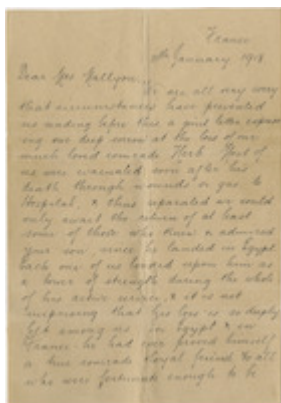 France
January, 1918
Dear Mrs Hallyon,
We are all very sorry
that circumstances have prevented
us sending before this a joint letter express
ing our deep sorrow at the loss of our
much loved comrade Herb. Most of
us were evacuated soon after his
death through wounds or gas to
Hospital, & thus separated we could
only await the return of at least
some of those who knew & admired
your son, since he landed in Egypt.
Each one of us looked upon him as
a tower of strength during the whole
of his active service, & it is not
surprising that his loss is so deeply
felt among us. In Egypt & in
France he had ever proved himself
a true comrade & loyal friend to all
who were fortunate enough to be